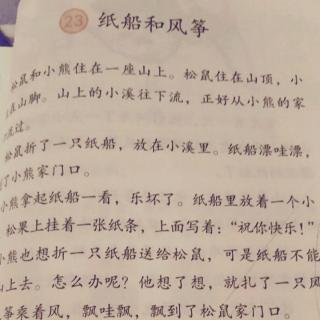 23 纸船和风筝
松鼠和小熊住在一座山上。松鼠住在山顶，小
住在山脚。山上的小溪往下流，正好从小熊的家
流过。
松鼠折了一只纸船，放在小溪里。纸船漂哇漂，
了小熊家门口。
小熊拿起纸船一看，乐坏了。纸船里放着一个小
松果上挂着一张纸条，上面写着：“祝你快乐！”
小熊也想折一只纸船送给松鼠，可是纸船不能
山上去。怎么办呢？他想了想，就扎了一只风
筝乘着风，飘哇飘，飘到了松鼠家门口。